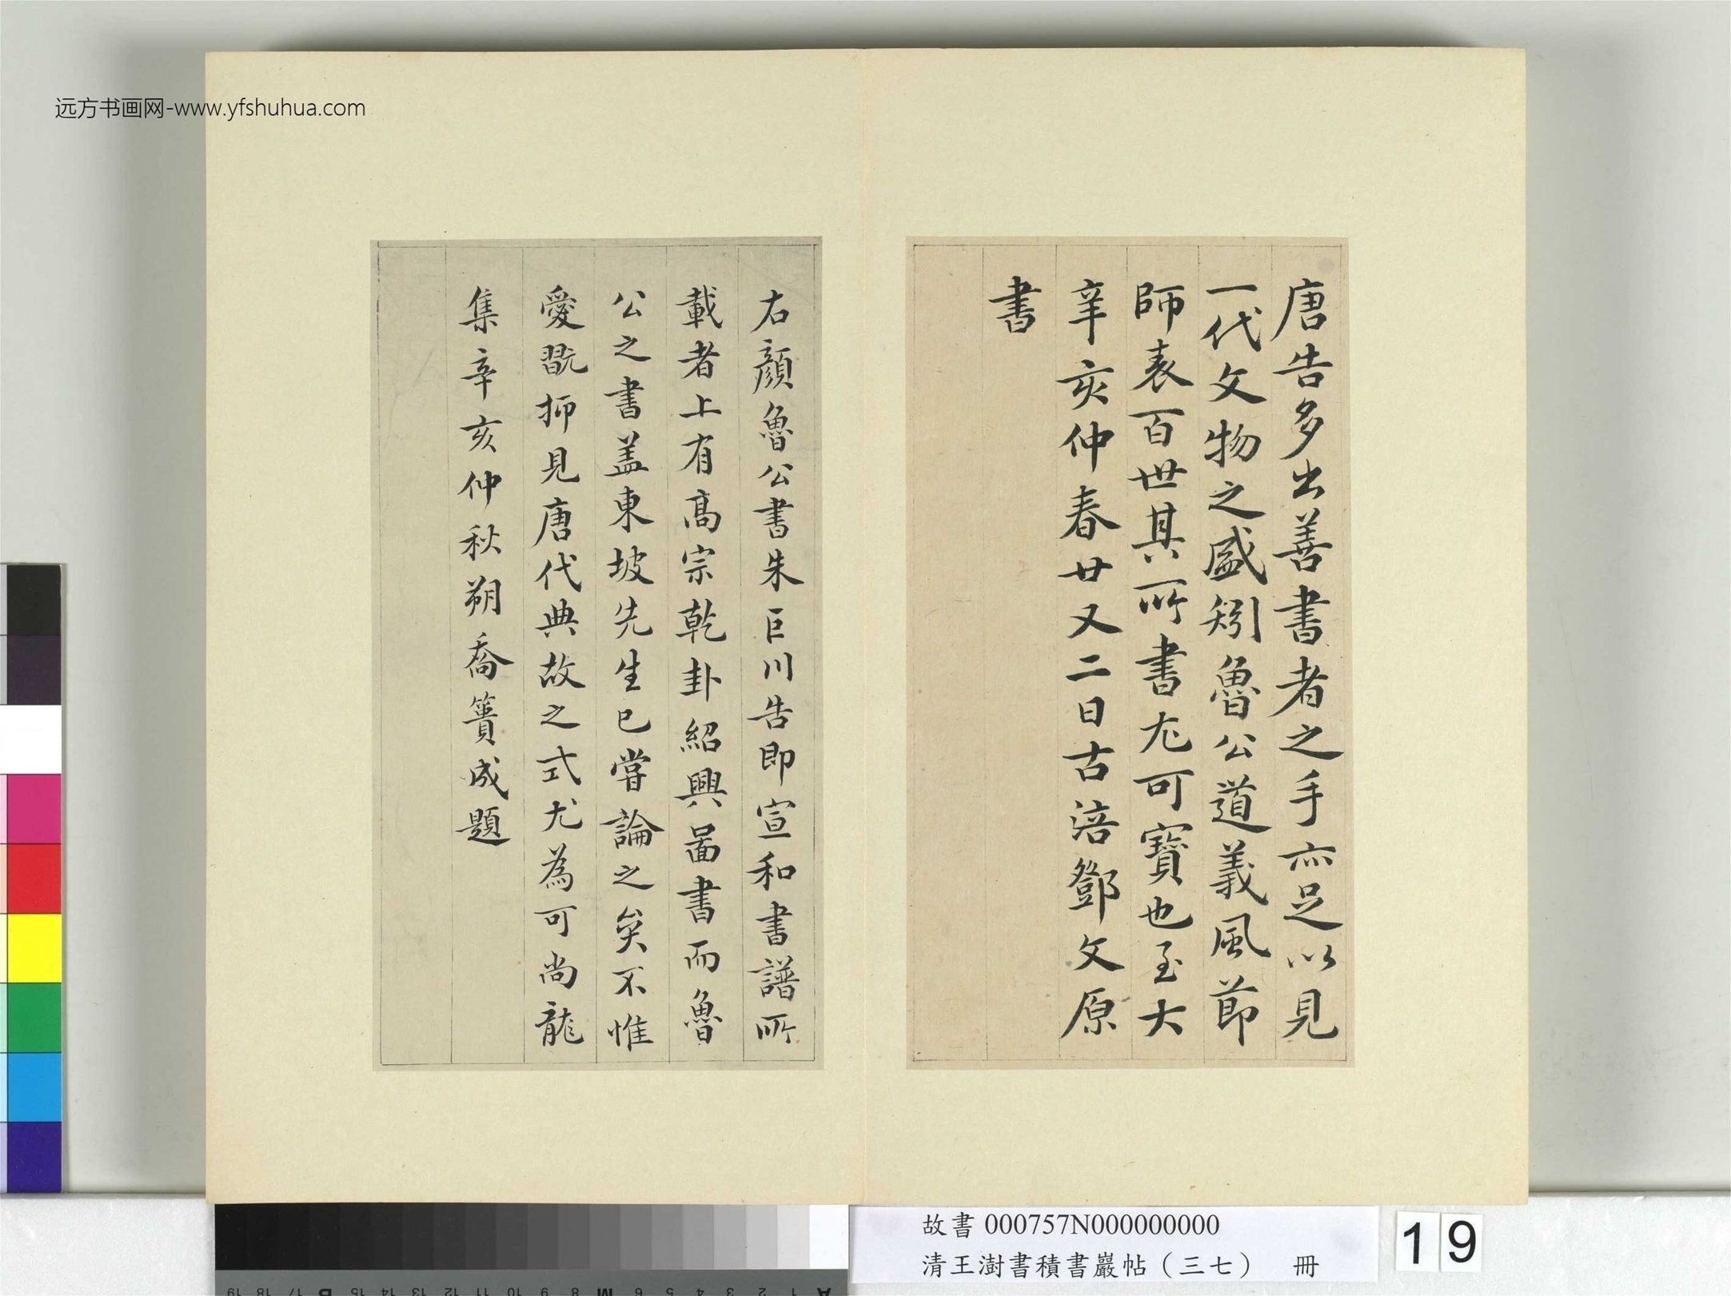 远方书画网-www.yfshuhua.com
唐告多出善書者之手亦足以見
一代文物之盛矧魯公道義風節
師表百世其所書尤可寶也至大
辛亥仲春廿又二日古涪鄧文原
書
右顏魯公書朱巨川告即宣和書譜所
載者上有高宗乾卦紹興圖書而魯
公之書蓋東坡先生已嘗論之矣不惟
愛翫抑見唐代典故之式尤為可尚龍
集辛亥仲秋朔喬簣成題
故書 000757N000000000
清王澍書積書巖帖（三七） 冊
19